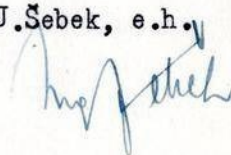 J.Šebek, e.h.
Ing Šebek